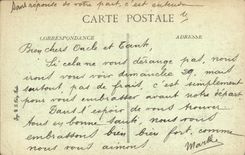 Sans réponse de votre part, c'est entendu
CARTE POSTALE
CORRESPONDANCE ADRESSE
Bien chers Oncle et Tante,
Si cela ne vous dérange pas, nous
irons vous voir dimanche 29, mais
surtout, pas de frais, c'est simplement
pour vous embrasser avant notre départ
Dans l'espoir de vous trouver
tous en bonne santé, nous vous
embrassons bien bien fort, comme
nous vous aimons